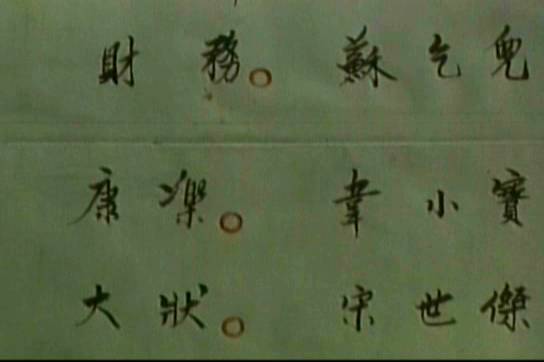 財務。蘇乞兒
康樂。韋小寶
大狀。宋世傑